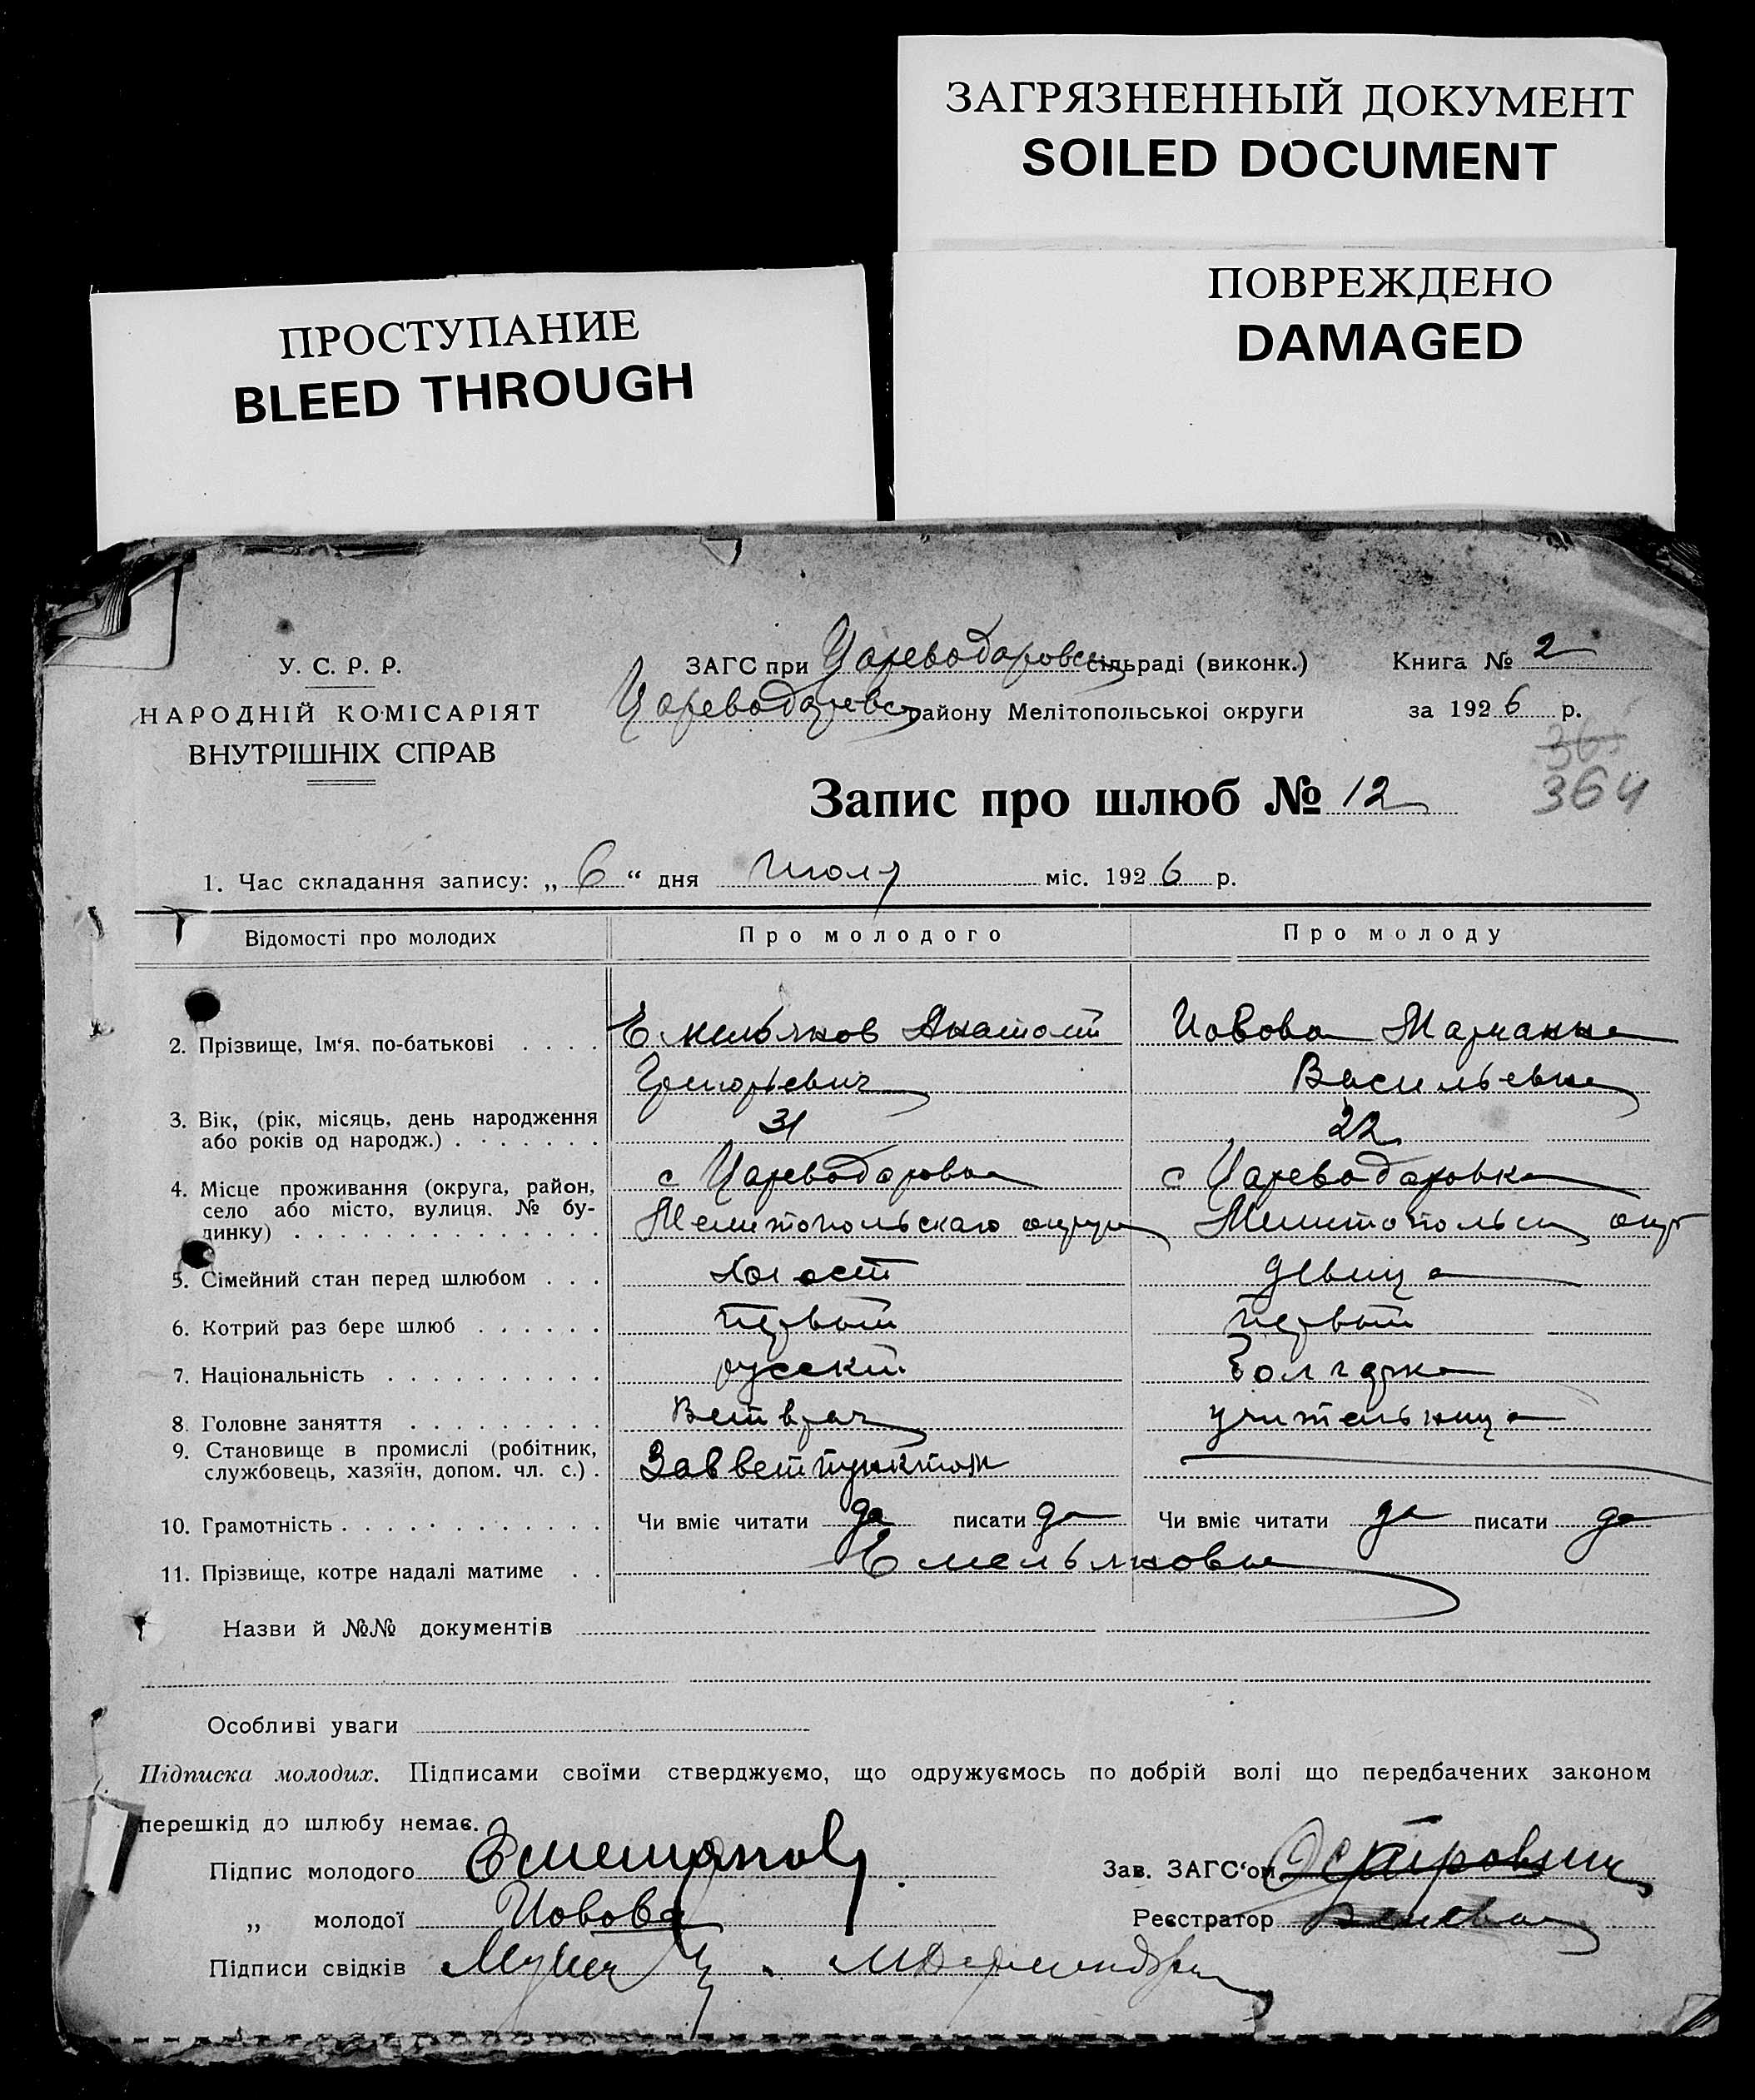 ЗАГРЯЗНЕННЫЙ ДОКУМЕНТ
SOILED DOCUMENT
ПОВРЕЖДЕНО
DAMAGED
ПРОСТУПАНИЕ
BLEED THROUGH
У. С. Р. Р.
НАРОДНІЙ КОМІСАРІЯТ
ВНУТРІШНІХ СПРАВ
ЗАГС при Цареводаровск сільраді (виконк.) Книга № 2
Цареводаровск району Мелітопольської округи за 1926 р.
364
Запис про шлюб № 12
1. Час складання запису: „ 6 “ дня Июля міс. 1926 р.
Відомості про молодих Про молодого Про молоду
2. Прізвище, Ім‘я, по-батькові Емельянов Анатолий Иовова Марианна
Григорьевич Васильевна
3. Вік, (рік, місяць, день народження
або років од народж.) 31 22
4. Місце проживання (округа, район, с Цареводаровка с Цареводаровка
село або місто, вулиця, № бу-
динку) Мелитопольскаго округа Мелитопольск окр
5. Сімейний стан перед шлюбом Холост девица
6. Котрий раз бере шлюб первый первый
7. Національність русский болгарка
8. Головне заняття Ветврач учительница
9. Становище в промислі (робітник,
службовець, хазяїн, допом. чл. с.) Завветпунктом
10. Грамотність Чи вміє читати да писати да Чи вміє читати да писати да
11. Прізвище, котре надалі матиме Емельяновы
Назви й №№ документів
Особливі уваги
Підписка молодих. Підписами своїми стверджуємо, що одружуємось по добрій волі що передбачених законом
перешкід до шлюбу немає.
Підпис молодого Емельянов Зав. ЗАГС‘ом
„ молодої Иовова Реєстратор
Підписи свідків